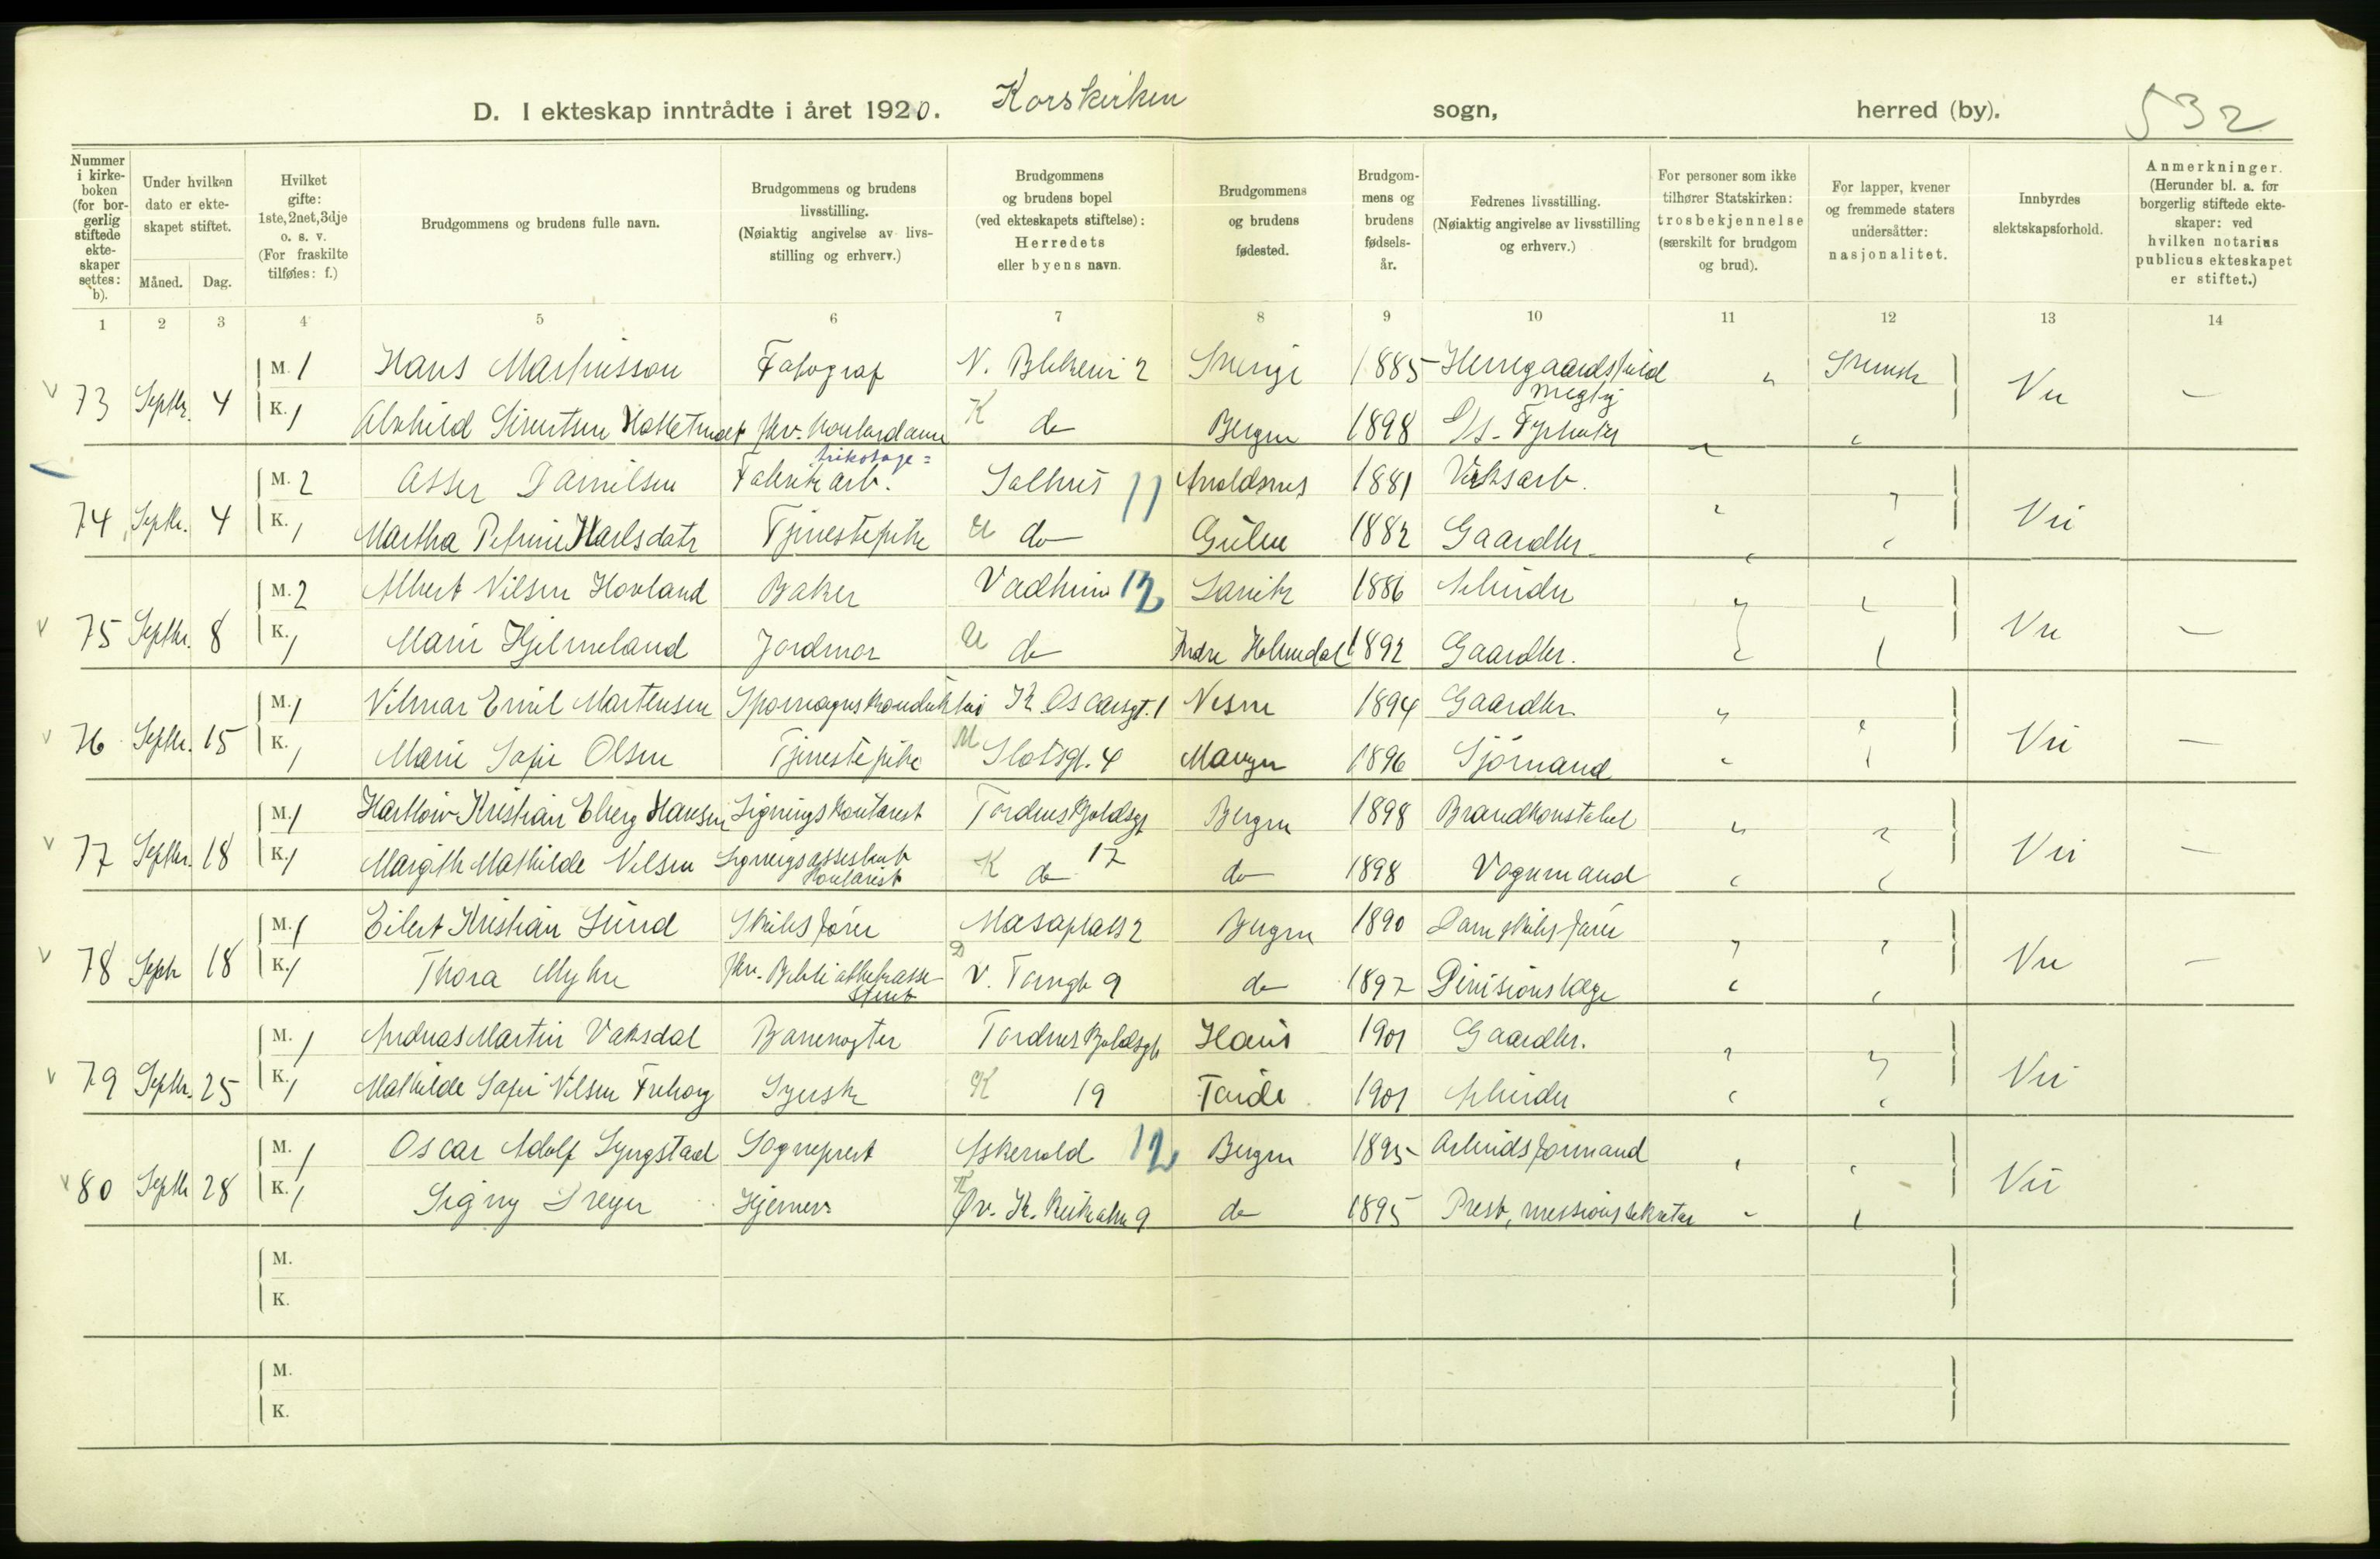 D. I ekteskap inntrådte i året 1920. Korskirken sogn, herred (by). 532
Nummer i kirkeboken (for borgerlig stiftede ekteskaper settes: b).
Under hvilken dato er ekteskapet stiftet.
Måned. Dag.
Hvilket gifte: 1ste, 2net, 3dje o. s. v. (For fraskilte tilføies: f.)
Brudgommens og brudens fulle navn.
Brudgommens og brudens livsstilling. (Nøiaktig angivelse av livsstilling og erhverv.)
Brudgommens og brudens bopel (ved ekteskapets stiftelse): Herredets eller byens navn.
Brudgommens og brudens fødested.
Brudgommens og brudens fødselsår.
Fedrenes livsstilling. (Nøiaktig angivelse av livsstilling og erhverv.)
For personer som ikke tilhører Statskirken: trosbekjennelse (særskilt for brudgom og brud).
For lapper, kvener og fremmede staters undersåtter: nasjonalitet.
Innbyrdes slektskapsforhold.
Anmerkninger. (Herunder bl. a. for borgerlig stiftede ekteskaper: ved hvilken notarius publicus ekteskapet er stiftet.)
1 2 3 4 5 6 7 8 9 10 11 12 13 14
73 Septbr. 4 M. 1 Hans Martinsson Fotograf N. Blekevei 2 Sverige 1885 " Svensk Nei —
K. 1 Alvhild Sivertsen K do Bergen 1898
74 Septbr. 4 M. 2 Asser Danielsen trikotage= Fabrikarb. Salhus 11 Arnoldsnes 1881 Verksarb. Nei
K. 1 Martha Petrine Karlsdatr Tjenestepike U do Gulen 1882 Gaardbr.
75 Septbr. 8 M. 2 Albert Nilsen Hovland Baker Vadheim 12 Lavik 1886 Arbeider Nei —
K. 1 Marie Hjelmeland Jordmor U do Indre Holmedal 1892 Gaardbr.
76 Septbr. 15 M. 1 Vilmar Emil Martensen Sporvognskonduktør K. Oscarsgt. 1 Nesne 1894 Gaardbr. Nei —
K. 1 Marie Sofie Olsen Tjenestepike Slotsgt. 4 Manger 1896 Sjømand
77 Septbr. 18 M. 1 Kristian Hansen Ligningskontorist Tordenskjoldsgt 1898 Bergen Brandkonstabel Nei —
K. 1 Margith Mathilde Nilsen Ligningsassistent Kontorist K do 17 do 1898 Vognmand
78 Septr 18 M. 1 Eilert Kristian Lund Skibsfører 2 Bergen 1890 Dampskibsfører Nei —
K. 1 Thora Myhre V. Torvgt 9 do 1897 Divisionslæge
79 Septbr. 25 M. 1 Andreas Martin Vaksdal Banevogter Tordenskjoldsgt Haus 1901 Gaardbr. Nei
K. 1 Mathilde Sofie Nilsen Syerske K 19 1901 Arbeider
80 Septbr 28 M. 1 Oscar Adolf Lyngstad Sogneprest Askevold 12 Bergen 1895 Arbeidsformand Nei
K. 1 Signy Dreyer Hjemmev. 9 do 1895 Prest, missionssekretær
M.
K.
M.
K.